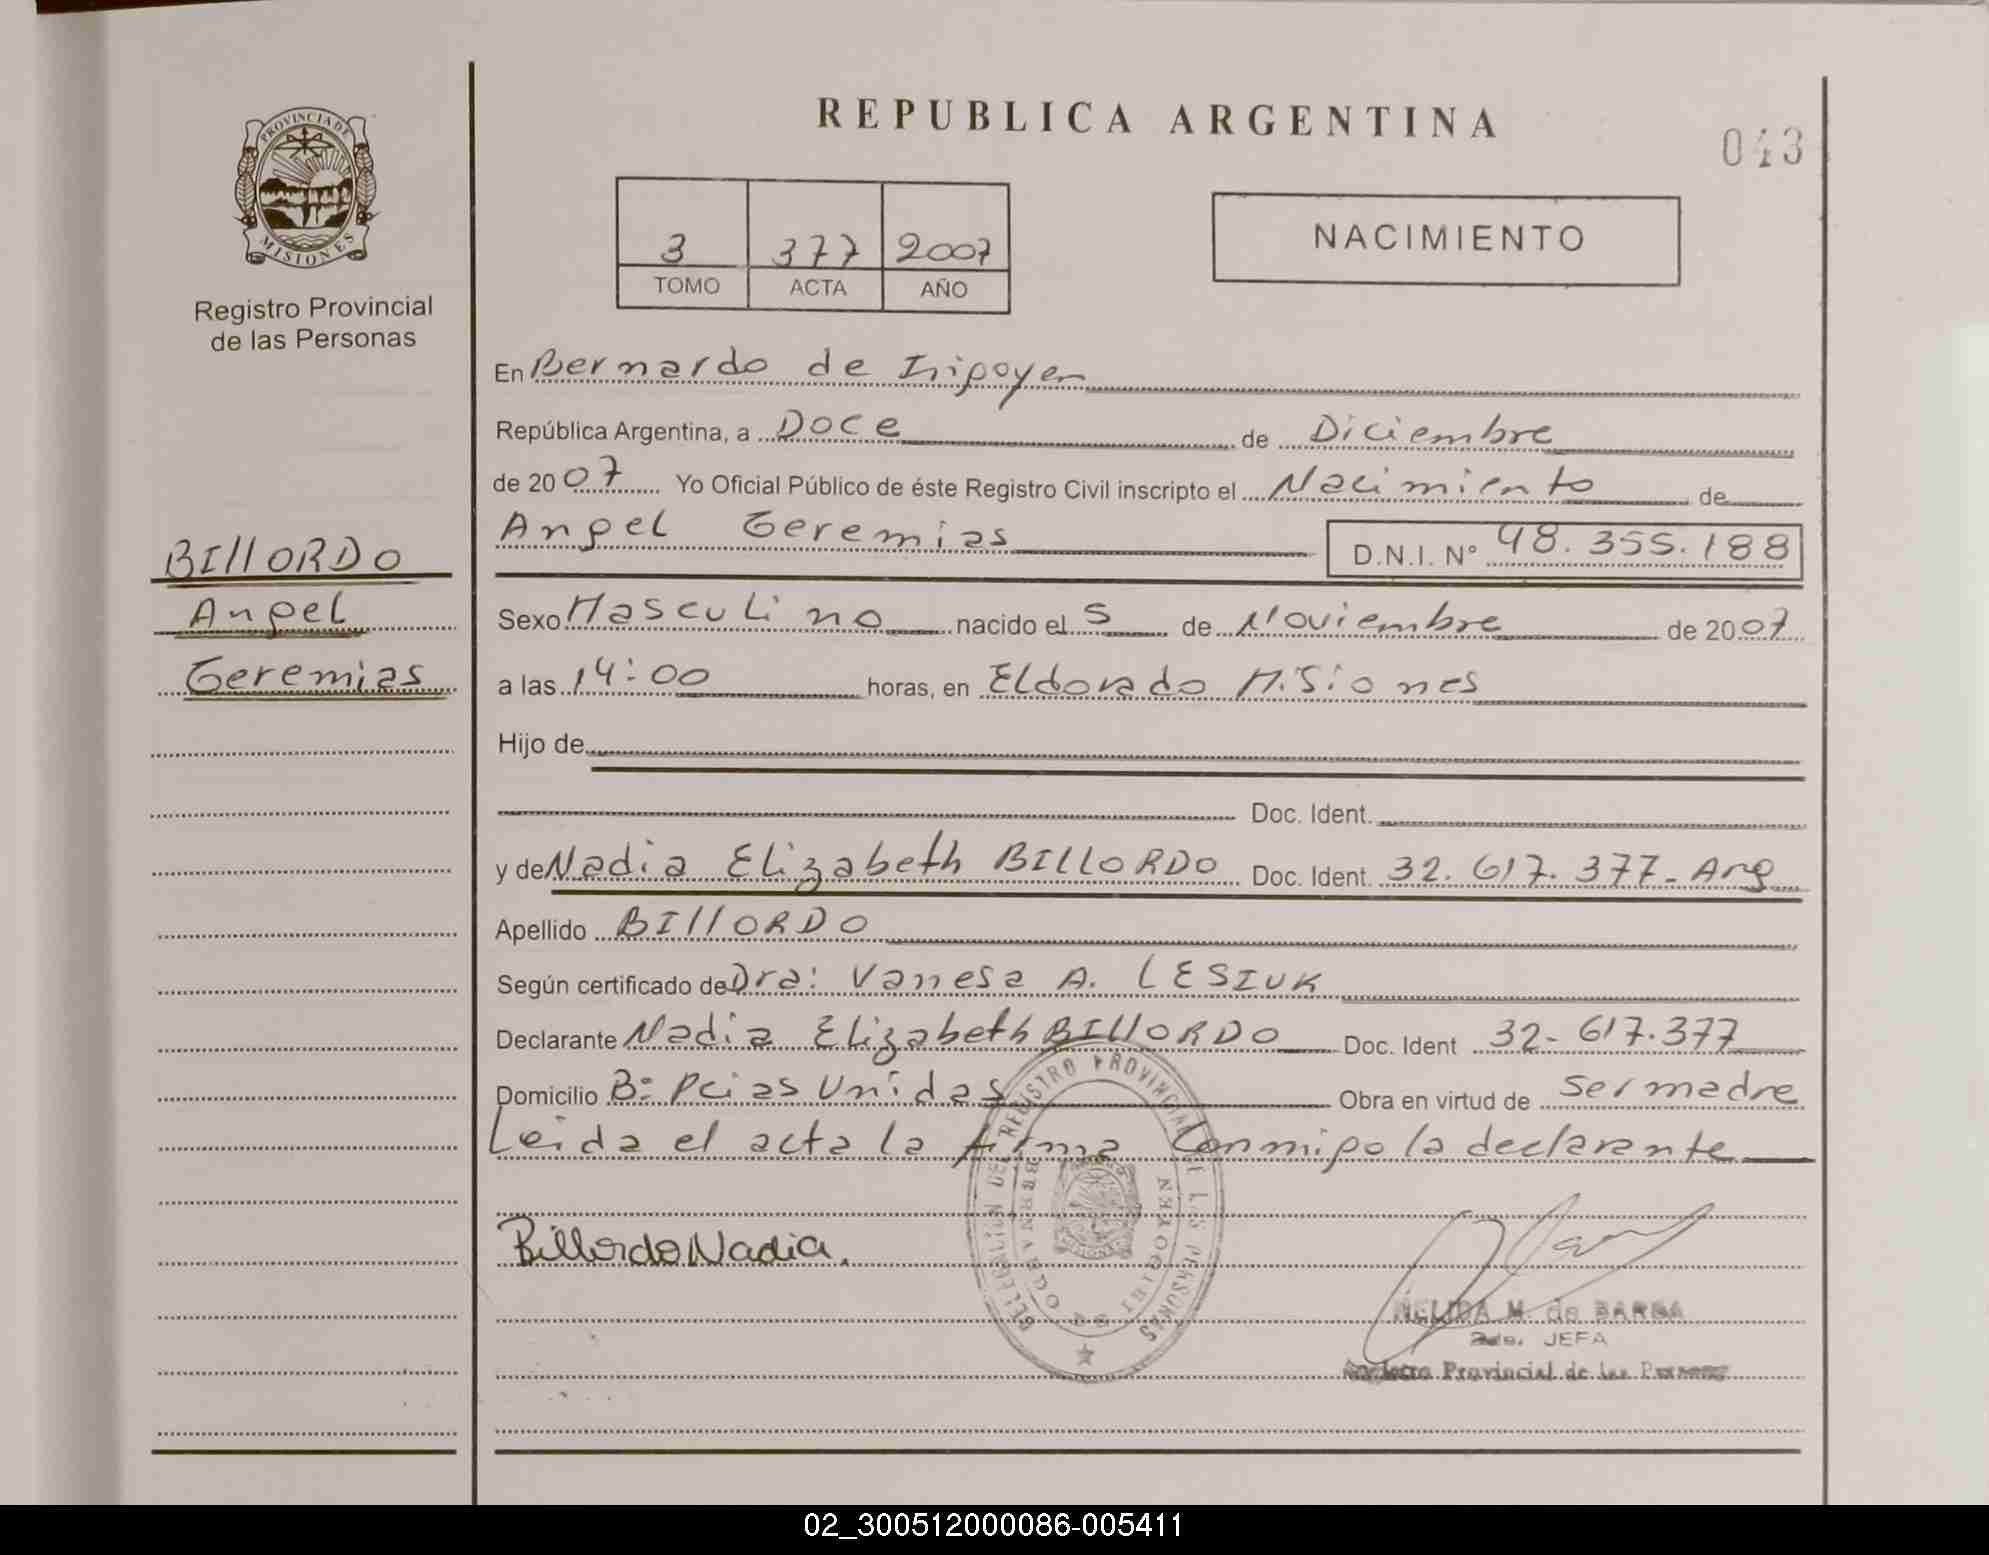 REPUBLICA ARGENTINA
043
PROVINCIA DE
MISIONES
Registro Provincial
de las Personas
3 377 2007
TOMO ACTA AÑO
NACIMIENTO
En Bernardo de Iripoyen
República Argentina, a Doce de Diciembre
de 2007 Yo Oficial Público de éste Registro Civil inscripto el Nacimiento de
Angel Geremias D.N.I. Nº 48.355.188
BIllORDO
Angel
Geremias
Sexo Masculino nacido el 5 de Noviembre de 2007
a las 14:00 horas, en Eldorado Misiones
Hijo de
Doc. Ident.
y de Nadia Elizabeth BILLORDO Doc. Ident. 32.617.377- Arg
Apellido BIllORDO
Según certificado de Dra: Vanesa A. LESIUK
Declarante Nadia Elizabeth BIllORDO Doc. Ident 32-617.377
Domicilio Bº Pcias Unidas Obra en virtud de ser madre
Leida el acta la firma conmigo la declarante
Billordo Nadia.
REGISTRO PROVINCIAL DE LAS PERSONAS
BERNARDO DE IRIGOYEN
MISIONES
NELIDA M. de BARBA
2da. JEFA
Registro Provincial de las Personas
02_300512000086-005411